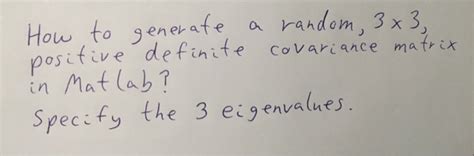 How to generate a random, 3 x 3,
positive definite covariance matrix
in Matlab?
Specify the 3 eigenvalues.